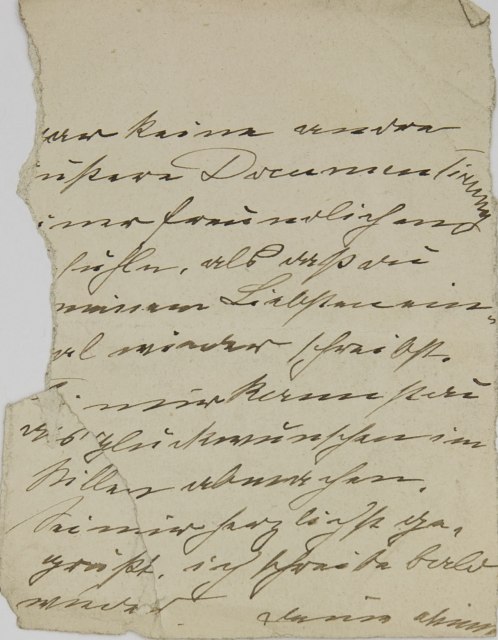 gar keine andre
äußere Documentirung
iner freundlichen
fühle, als daß du
meinem Liebsten ein-
al wieder schreibst.
mir kannst du
as Glückwünschen im
Stillen abmachen.
Sei mir herzlichst ge-
grüßt, ich schreibe bald
wieder. deine